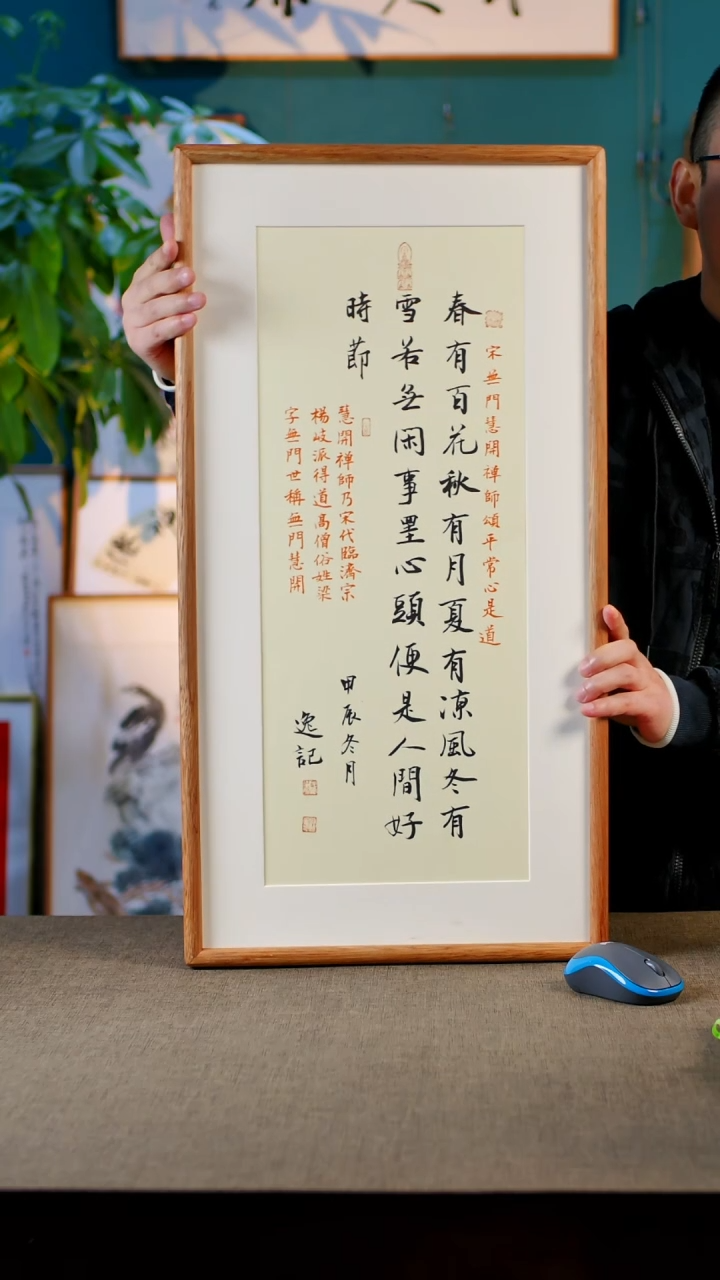 宋無門慧開禪師頌平常心是道
春有百花秋有月夏有涼風冬有
雪若無閑事罣心頭便是人間好
時節
慧開禪師乃宋代臨濟宗
楊岐派得道高僧俗姓梁
字無門世稱無門慧開
甲辰冬月
逸記